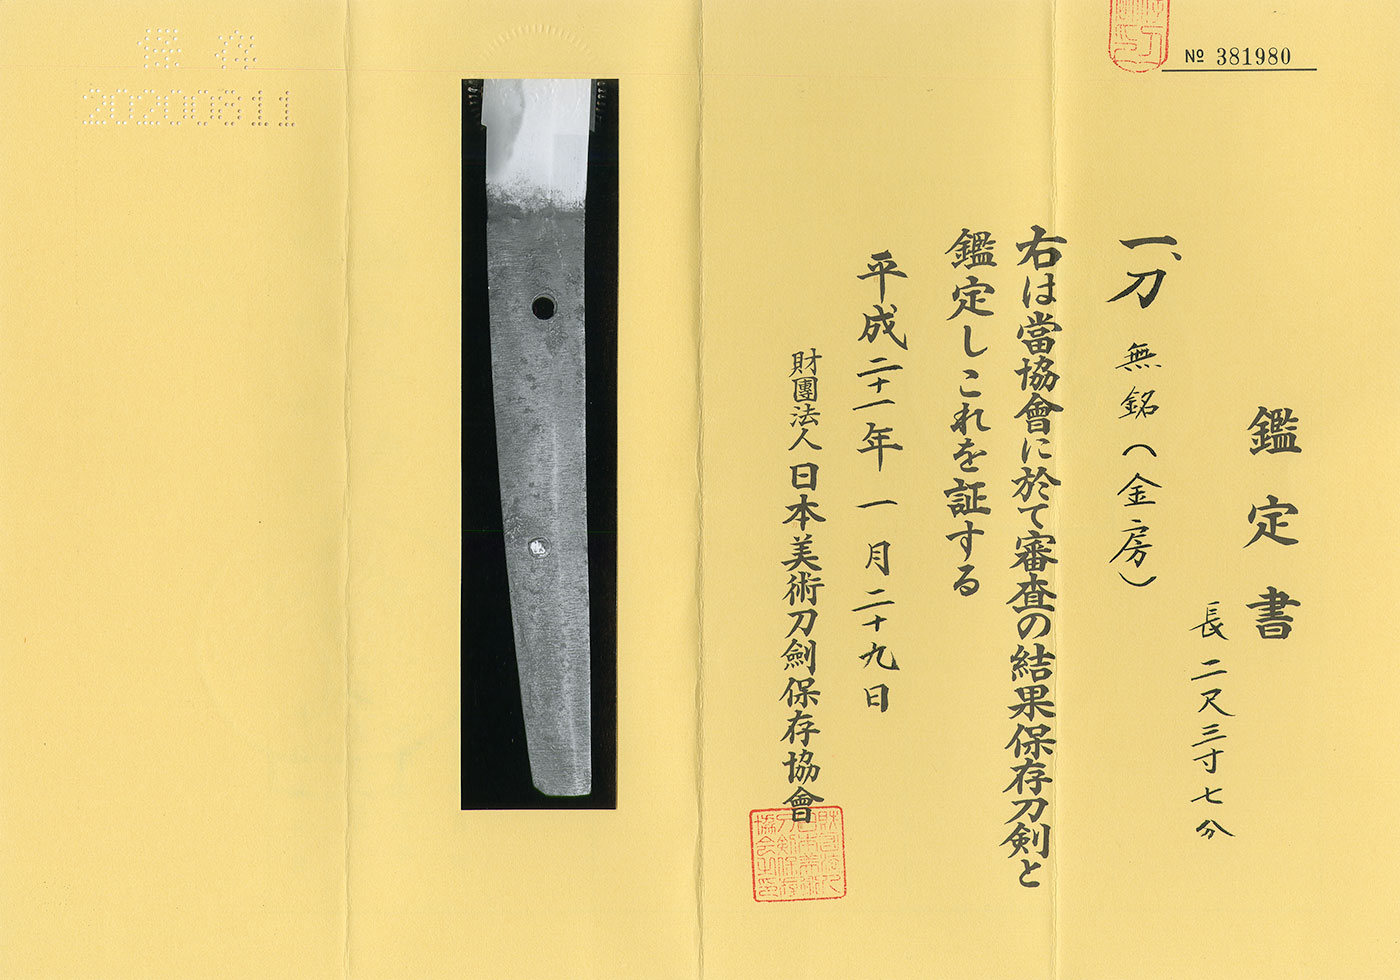 № 381980
鑑定書
長 二尺三寸七分
一、刀 無銘(金房)
右は當協會に於て審査の結果保存刀剣と
鑑定しこれを証する
平成二十一年一月二十九日
財團法人日本美術刀劍保存協會
保存